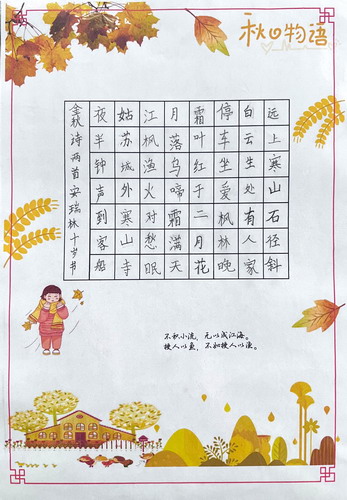 秋日物语
远上寒山石径斜
白云生处有人家
停车坐爱枫林晚
霜叶红于二月花
月落乌啼霜满天
江枫渔火对愁眠
姑苏城外寒山寺
夜半钟声到客船
金秋诗两首安瑞林十岁
不积小流，无以成江海。
授人以鱼，不如授人以渔。